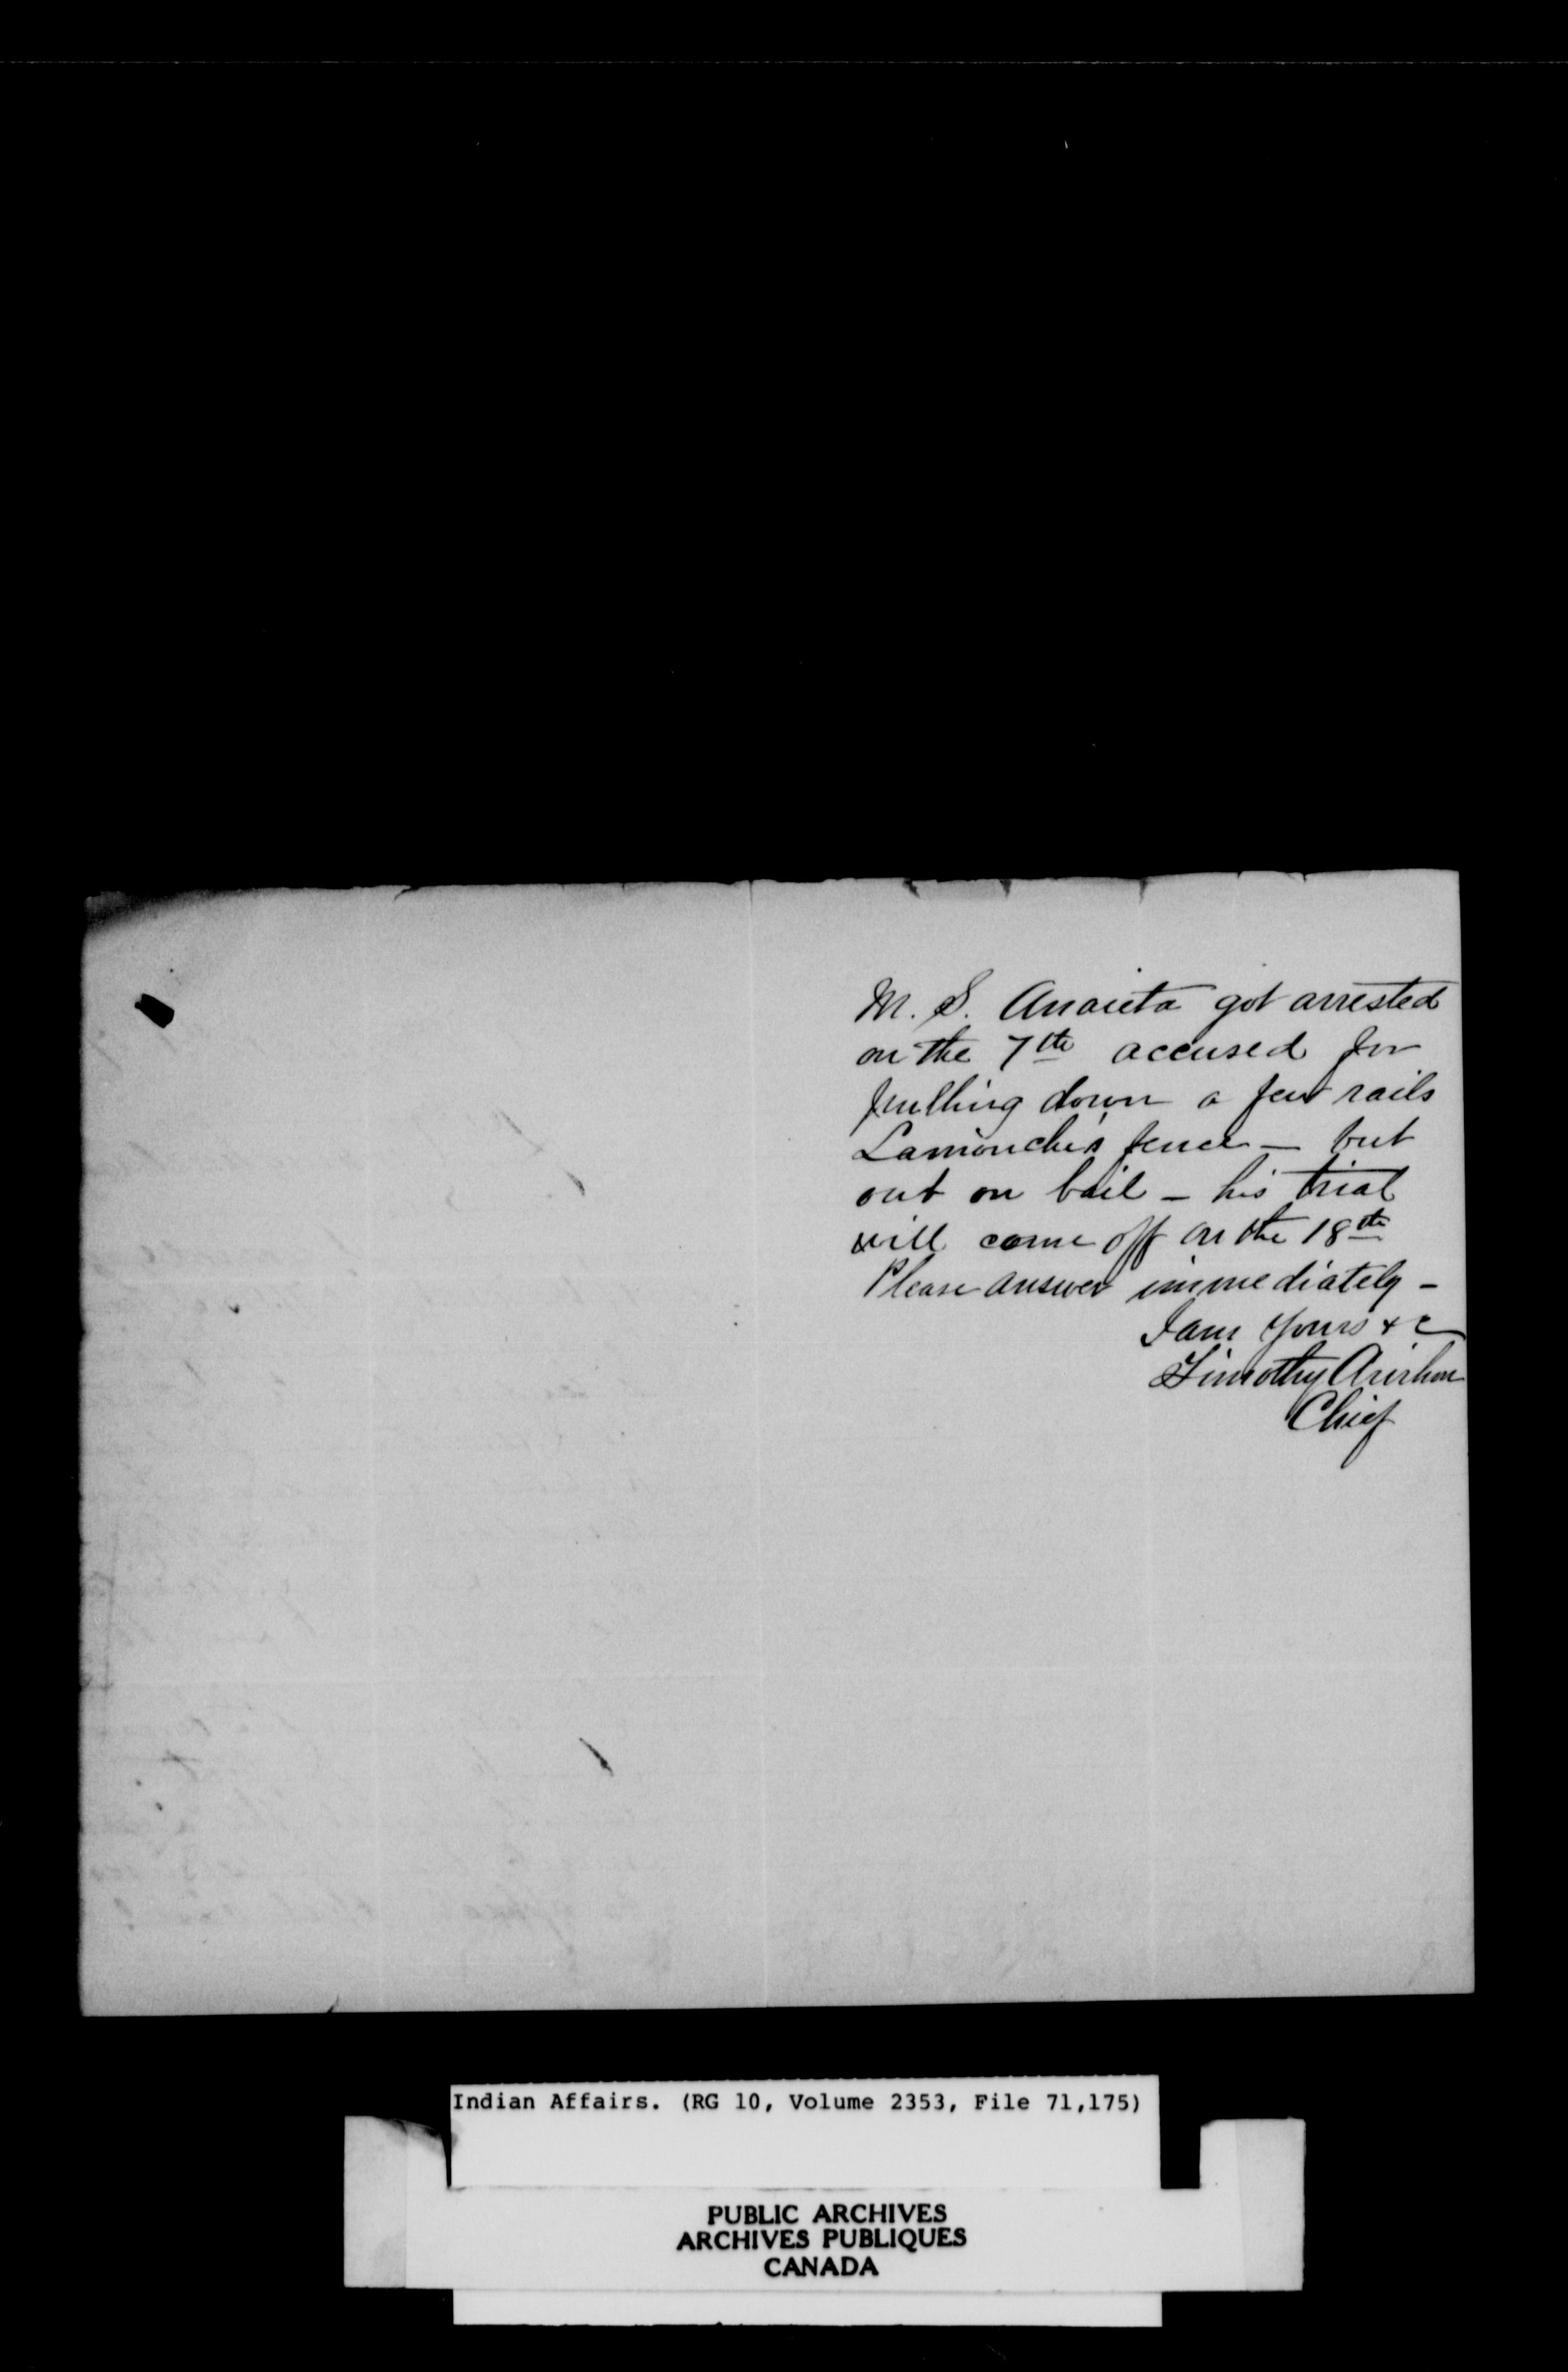 M. S. Anaieta got arrested
on the 7th accused for
pulling down a few rails
Lamouche's fence — but
out on bail — his trial
will come off on the 18th
Please answer immediately —
I am yours & c
Timothy Arirhon
Chief
Indian Affairs. (RG 10, Volume 2353, File 71,175)
PUBLIC ARCHIVES
ARCHIVES PUBLIQUES
CANADA